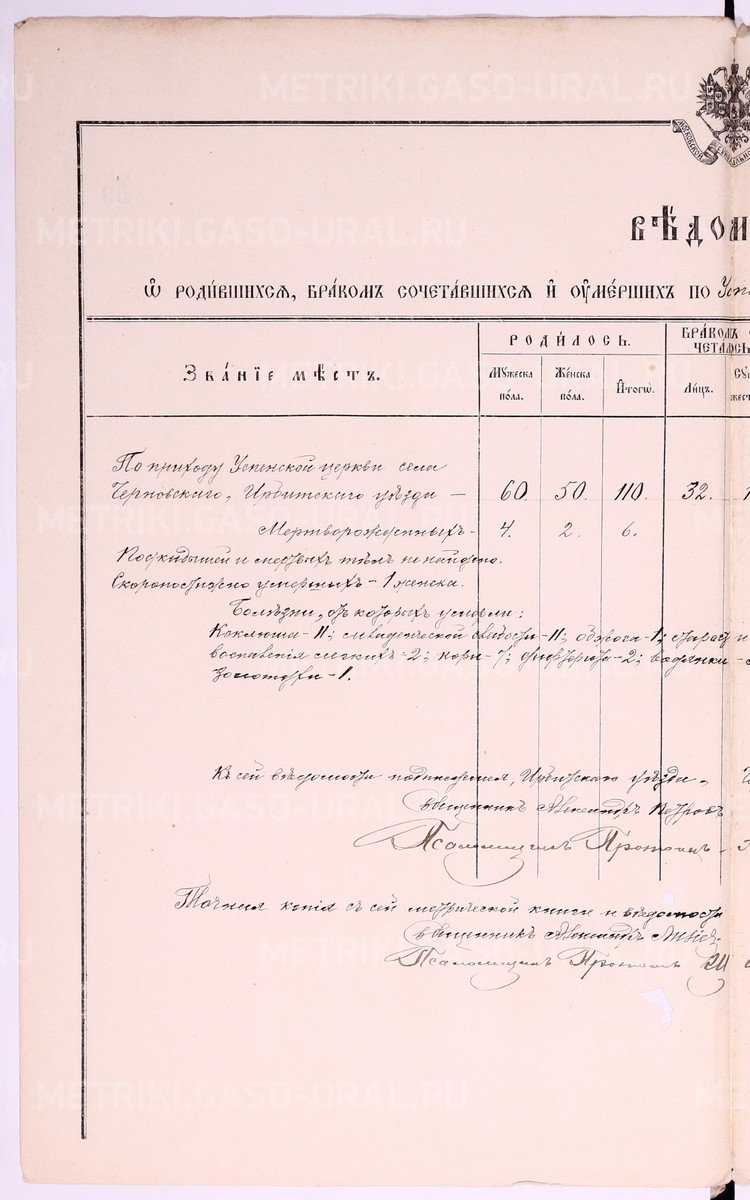 METRIKI.GASO-URAL.RU
МОСКОВСКОЙ
СѴНОДАЛЬНОЙ
ВѢДОМ
Ѡ РОДИ́ВШИХСѦ, БРА́КОМЪ СОЧЕТА́ВШИХСѦ И҆ ОУ҆МЕ́РШИХЪ ПО Успе
ЗВА́НІЕ МѢ́СТЪ.
РОДИ́ЛОСЬ.
БРА́КОМЪ
ЧЕТА́ЛОСЬ
Мꙋ́жеска по́ла.
Же́нска по́ла.
И҆тогѡ̀.
Ли́цъ.
По приходу Успенской церкви села
Черновскаго, Ирбитскаго уѣзда — 60. 50. 110. 32.
Мертворожденныхъ - 4. 2. 6.
Подкидышей и мертвыхъ тѣлъ не найдено.
Скоропостижно умершихъ - 1 женска.
Болѣзни, отъ которыхъ умерли:
Коклюша - 11; младенческой слабости - 11; - 1; старости
воспаленія легкихъ - 2; кори - 7; дифтерита - 2; водянки -
золотухи - 1.
Къ сей вѣдомости подписуемся, Ирбитскаго уѣзда,
Священникъ Александръ Петровъ
Псаломщикъ
Точная копія съ сей метрической книги и вѣдомости
Священникъ Александръ
Псаломщикъ